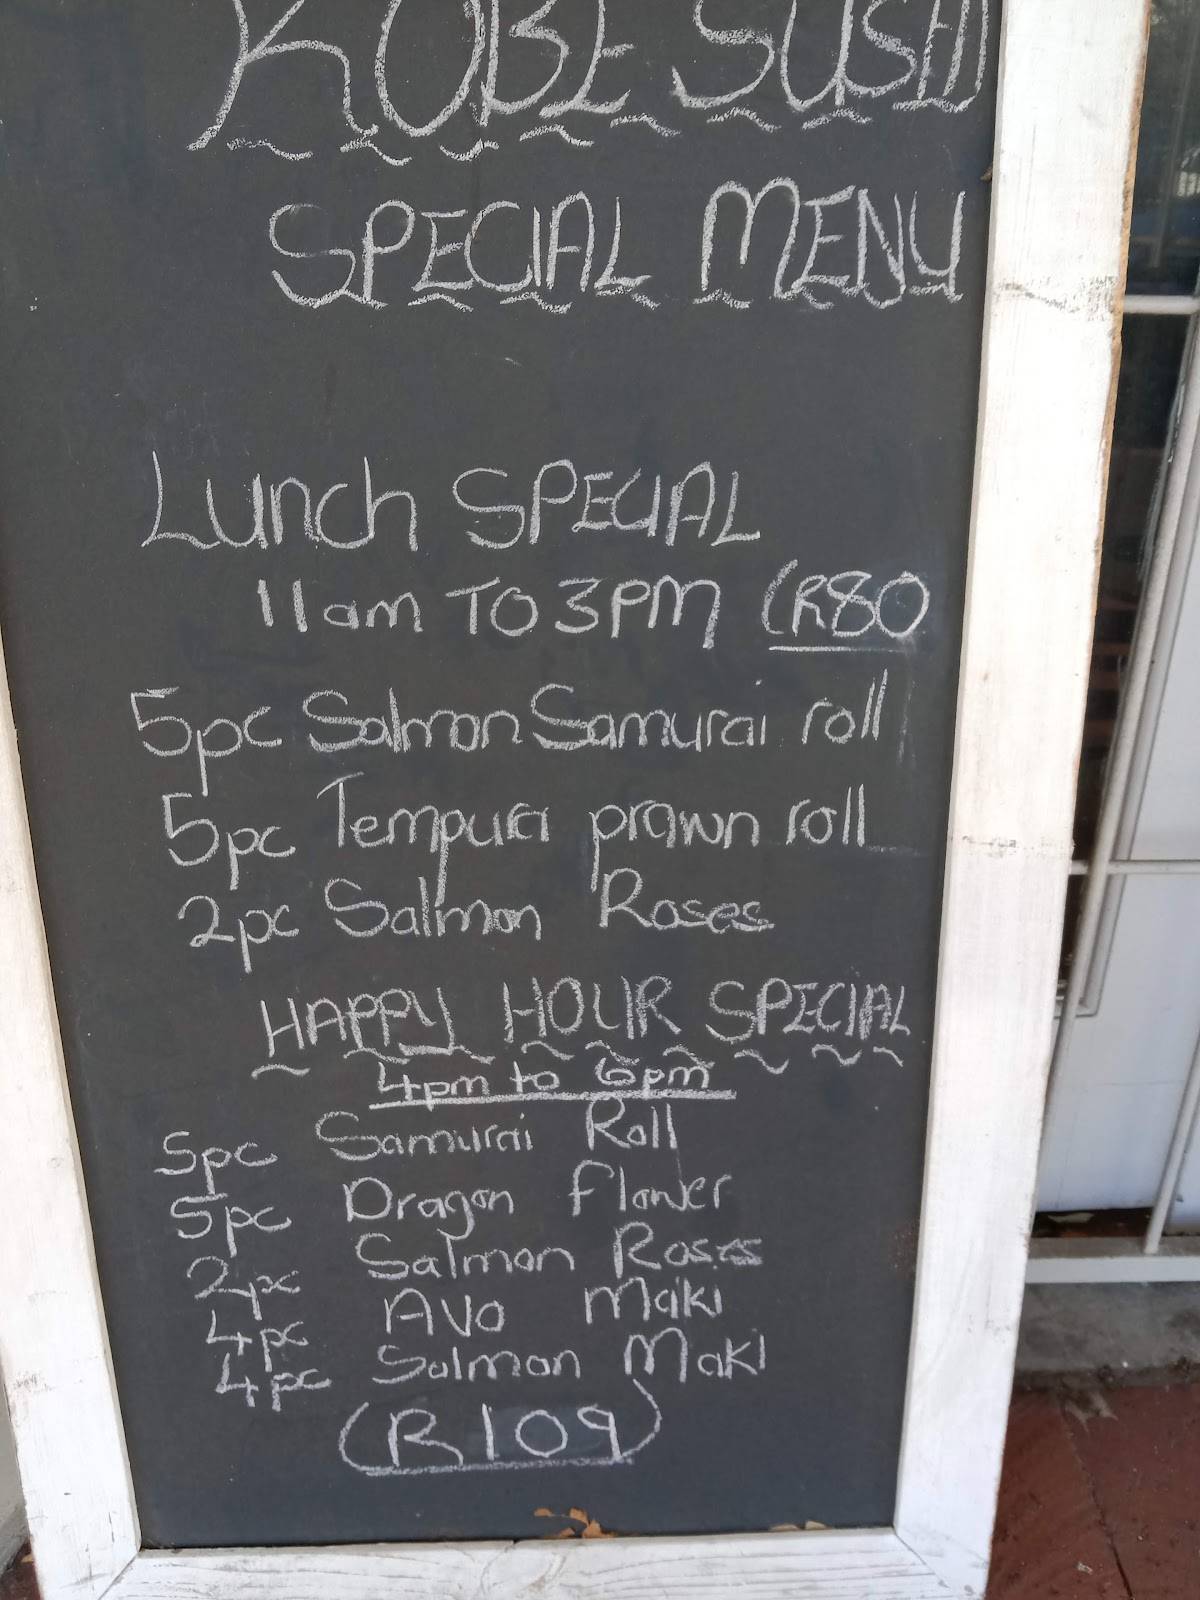 KOBE SUSHI
SPECIAL MENU
Lunch SPECIAL
11am TO 3PM (R80
5pc Salmon Samurai roll
5pc Tempura prawn roll
2pc Salmon Roses
HAPPY HOUR SPECIAL
4pm to 6pm
5pc Samurai Roll
5pc Dragon flower
2pc Salmon Roses
4pc Avo Maki
4pc Salmon Maki
(R109)